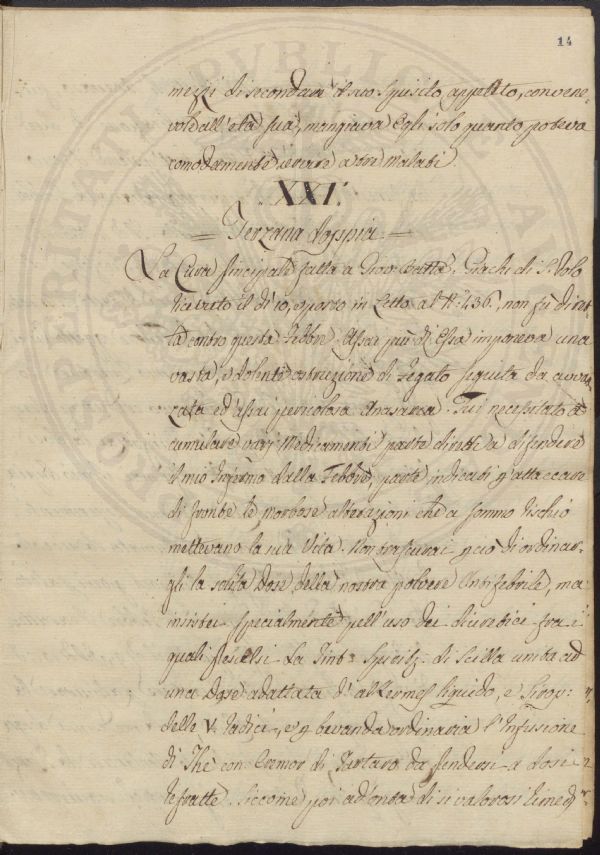 14
mezzi di secondare il suo squisito appetito, convene-
vole all'età sua, mangiava Egli solo quanto poteva
comodamente servire a tre Malati.
XXI.
Terzana doppia.
La Cura principale fatta a Gio: Batta Giachi di S. Polo
ricevuto il dì 10, e posto in Letto al N.° 436, non fù diret-
ta contro questa Febbre. Assai più di Essa imponeva una
vasta, e dolente ostruzione di Fegato seguita da avvan-
zata ed assai pericolosa Anasarca. Fui necessitato ac-
cumulare varj Medicamenti parte diretti a difendere
il mio Infermo dalla Febbre, parte indicati p attaccare
di fronte le morbose alterazioni che a sommo rischio
mettevano la sua Vita. Non trascurai p ciò di ordinar-
gli la solita Dose della nostra polvere Antifebrile, ma
insistei specialmente nell'uso dei diuretici fra i
quali prescelsi la Tint.ª Spirit. di Scilla unita ad
una Dose adattata di alKermes liquido, e Sirop:
delle V. radici, e p bevanda ordinaria l'Infusione
di Thè con Cremor di Tartaro da prendersi a dosi
refratte. Siccome poi ad onta di si valorosi Rimedj